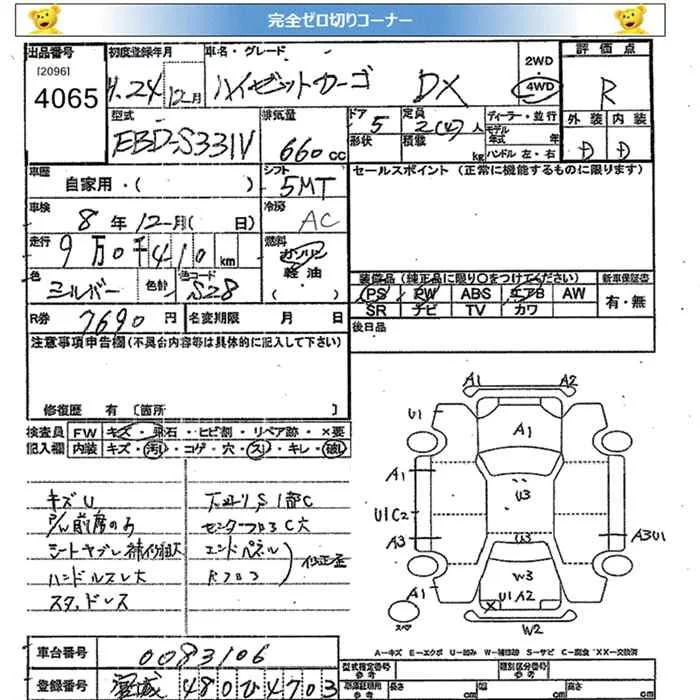 完全ゼロ切りコーナー
出品番号 初度登録年月 車名・グレード 2WD 評価点
[2096]
4065 H.24 12月 ハイゼットカーゴ DX 4WD R
型式 排気量 ドア 定員 ディーラー・並行 外装 内装
EBD-S331V 660cc 5 2(4)人 モデル年式 年 D D
形状 積載 kg ハンドル 左・右
車歴 シフト セールスポイント (正常に機能するものに限ります)
自家用・( ) 5MT
車検 冷房
8年12月( 日) AC
走行 燃料
9万0千410km ガソリン
色 色替 色コード 軽油
シルバー S28 ( )
装備品 (純正品に限り○をつけてください) 新車保証書
PS PW ABS エアB AW 有・無
SR ナビ TV カワ
R券 7690円 名変期限 月 日 後日品
注意事項申告欄(不具合内容等は具体的に記入して下さい)
修復歴 有 〔箇所 〕
検査員 FW キズ・飛石・ヒビ割・リペア跡・×要
記入欄 内装 キズ・汚れ・コゲ・穴・スレ・キレ・破レ
キズU 下廻りS1部C
センターフロアC穴
エンドパネル
ハンドルスレ大 Rフロア
スタッドレス
A1 A2
U1 A1
A1 U3
U1C2
A3 A3U1
W3
A1 U1A2
スペア W2
A―キズ E―エクボ U―凹み W―補修跡 S―サビ C―腐食 XX―交換済
車台番号 0083106
登録番号 宮城 480ひ4703
型式指定番号 参考 類別区分番号 参考
長さ cm 幅 cm 高さ cm